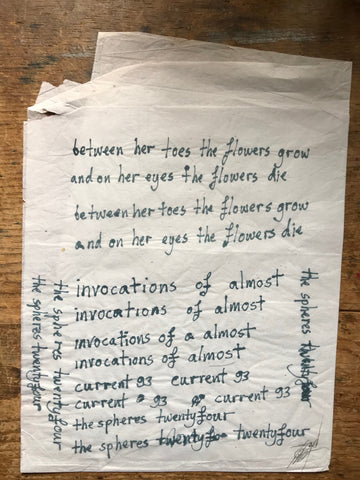 between her toes the flowers grow
and on her eyes the flowers die
between her toes the flowers grow
and on her eyes the flowers die
invocations of almost
invocations of almost
invocations of a almost
invocations of almost
current 93 current 93
current 93 current 93
the spheres twentyfour
the spheres twentyfo twentyfour
the spheres twentyfour
the spheres twentyfour
the spheres twentyfour